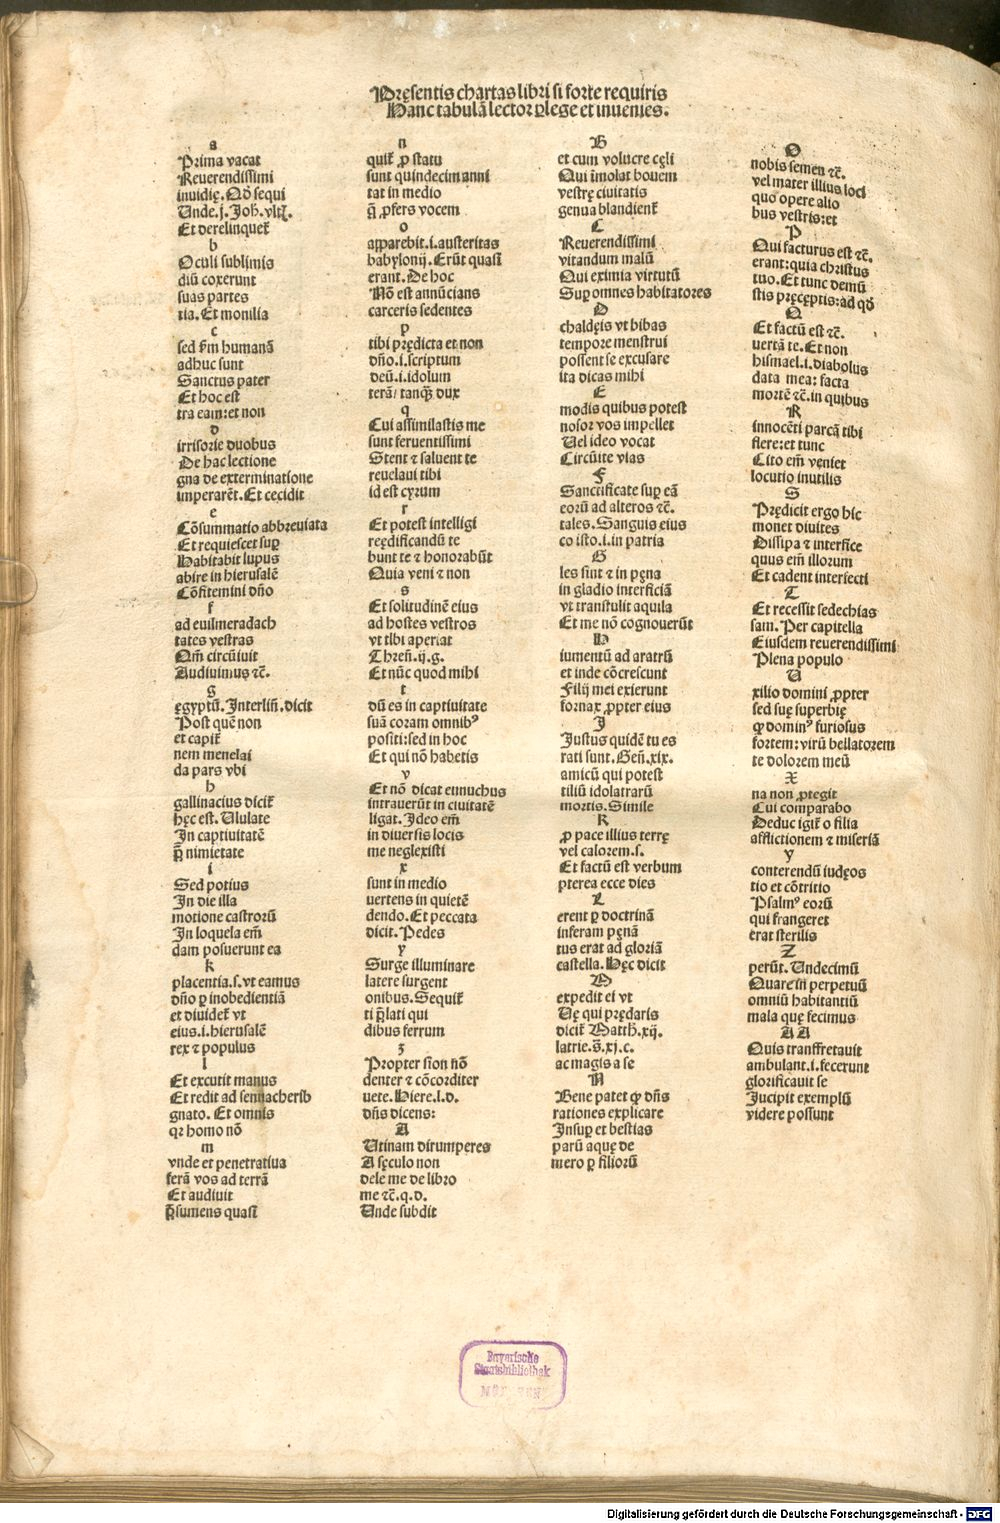 Pręsentis chartas libri si forte requiris
Hanc tabulã lector ꝑlege et inuenies.
a
Prima vacat
Reuerendissimi
inuidię. Qð sequi
Unde. j. Joh. vltį.
Et derelinquet᷑
b
Oculi sublimis
diũ coxerunt
suas partes
tia. Et monilia
c
sed ẜm humanã
adhuc sunt
Sanctus pater
Et hoc est
tra eam: et non
d
irrisorie duobus
De hac lectione
gna de exterminatione
imperarẽt. Et cecidit
e
Cõsummatio abbreuiata
Et requiescet suꝑ
Habitabit lupus
abire in hierusalẽ
Cõfitemini dño
f
ad euilmeradach
tates vestras
Qm̃ circũiuit
Audiuimus ⁊c̃.
g
ęgyptũ. Interliñ. dicit
Post quẽ non
et capit᷑
nem menelai
da pars vbi
h
gallinacius dicit᷑
hęc est. Ululate
In captiuitatẽ
p̃ nimietate
i
Sed potius
In die illa
motione castrorũ
In loquela em̃
dam posuerunt ea
k
placentia. s. vt eamus
dño ꝑ inobedientiã
et diuidet᷑ vt
eius. i. hierusalẽ
rex ⁊ populus
l
Et excutit manus
Et redit ad sennacherib
gnato. Et omnis
qꝛ homo nõ
m
vnde et penetratiua
ferã vos ad terrã
Et audiuit
p̃sumens quasi
n
quit᷑ ꝓ statu
sunt quindecim anni
tat in medio
q̃ ꝓfers vocem
o
apparebit. i. austeritas
babylonij. Erũt quasi
erant. De hoc
Nõ est annũcians
carceris sedentes
p
tibi prędicta et non
dño. i. scriptum
deũ. i. idolum
terã/ tanꝗ̃ dux
q
Cui assimilastis me
sunt feruentissimi
Stent ⁊ saluent te
reuelaui tibi
id est cyrum
r
Et potest intelligi
reędificandũ te
bunt te ⁊ honorabũt
Quia veni ⁊ non
s
Et solitudinẽ eius
ad hostes vestros
vt tibi aperiat
Threñ. ij. g.
Et nũc quod mihi
t
dũ es in captiuitate
suã coram omnibꝰ
positi: sed in hoc
Et qui nõ habetis
v
Et nõ dicat eunuchus
intrauerũt in ciuitatẽ
ligat. Ideo em̃
in diuersis locis
me neglexisti
x
sunt in medio
uertens in quietẽ
dendo. Et peccata
dicit. Pedes
y
Surge illuminare
latere surgent
onibus. Sequit᷑
ti p̃lati qui
dibus ferrum
z
Propter sion nõ
denter ⁊ cõcorditer
uete. Hiere. l. d.
dñs dicens:
A
Utinam dirumperes
A sęculo non
dele me de libro
me ⁊c̃. q. d.
Unde subdit
B
et cum volucre cęli
Qui ĩmolat bouem
vestrę ciuitatis
genua blandient᷑
C
Reuerendissimi
vitandum malũ
Qui eximia virtutũ
Suꝑ omnes habitatores
D
chaldęis vt bibas
tempore menstrui
possent se excusare
ita dicas mihi
E
modis quibus potest
nosor vos impellet
Uel ideo vocat
Circũite vias
F
Sanctificate suꝑ eã
eorũ ad alteros ⁊c̃.
tales. Sanguis eius
co isto. i. in patria
G
les sint ⁊ in pęna
in gladio interficiã
vt transtulit aquila
Et me nõ cognouerũt
H
iumentũ ad aratrũ
et inde cõcrescunt
Filij mei exierunt
fornax ꝓpter eius
I
Justus quidẽ tu es
rati sunt. Geñ. xix.
amicũ qui potest
tiliũ idolatrarũ
mortis. Simile
K
ꝓ pace illius terrę
vel calorem. s.
Et factũ est verbum
pterea ecce dies
L
erent ꝑ doctrinã
inferam pęnã
tus erat ad gloriã
castella. Hęc dicit
M
expedit ei vt
Uę qui prędaris
dicit᷑ Matth. xij.
latrie. s̃. xj. c.
ac magis a se
N
Bene patet ꝙ dñs
rationes explicare
Insuꝑ et bestias
parũ aquę de
mero ꝑ filiorũ
O
nobis semen ⁊c̃.
vel mater illius loci
quo opere alio
bus vestris: et
P
Qui facturus est ⁊c̃.
erant: quia christus
tuo. Et tunc demũ
stis pręcęptis: ad qð
Q
Et factũ est ⁊c̃.
uertã te. Et non
hismael. i. diabolus
data mea: facta
mortẽ ⁊c̃. in quibus
R
innocẽti parcã tibi
flere: et tunc
Cito em̃ veniet
locutio inutilis
S
Prędicit ergo hic
monet diuites
Dissipa ⁊ interfice
quus em̃ illorum
Et cadent interfecti
T
Et recessit sedechias
sam. Per capitella
Eiusdem reuerendissimi
Plena populo
U
xilio domini ꝓpter
sed suę superbię
ꝙ dominꝰ furiosus
fortem: virũ bellatorem
te dolorem meũ
X
na non ꝓtegit
Cui comparabo
Deduc igit᷑ o filia
afflictionem ⁊ miseriã
Y
conterendũ iudęos
tio et cõtritio
Psalmꝰ eorũ
qui frangeret
erat sterilis
Z
perũt. Undecimũ
Quare in̄ perpetuũ
omniũ habitantiũ
mala quę fecimus
AA
Quis transfretauit
ambulant. i. fecerunt
glorificauit se
Jucipit exemplũ
videre possunt
Bayerische
Staatsbibliothek
MÜNCHEN
Digitalisierung gefördert durch die Deutsche Forschungsgemeinschaft - DFG